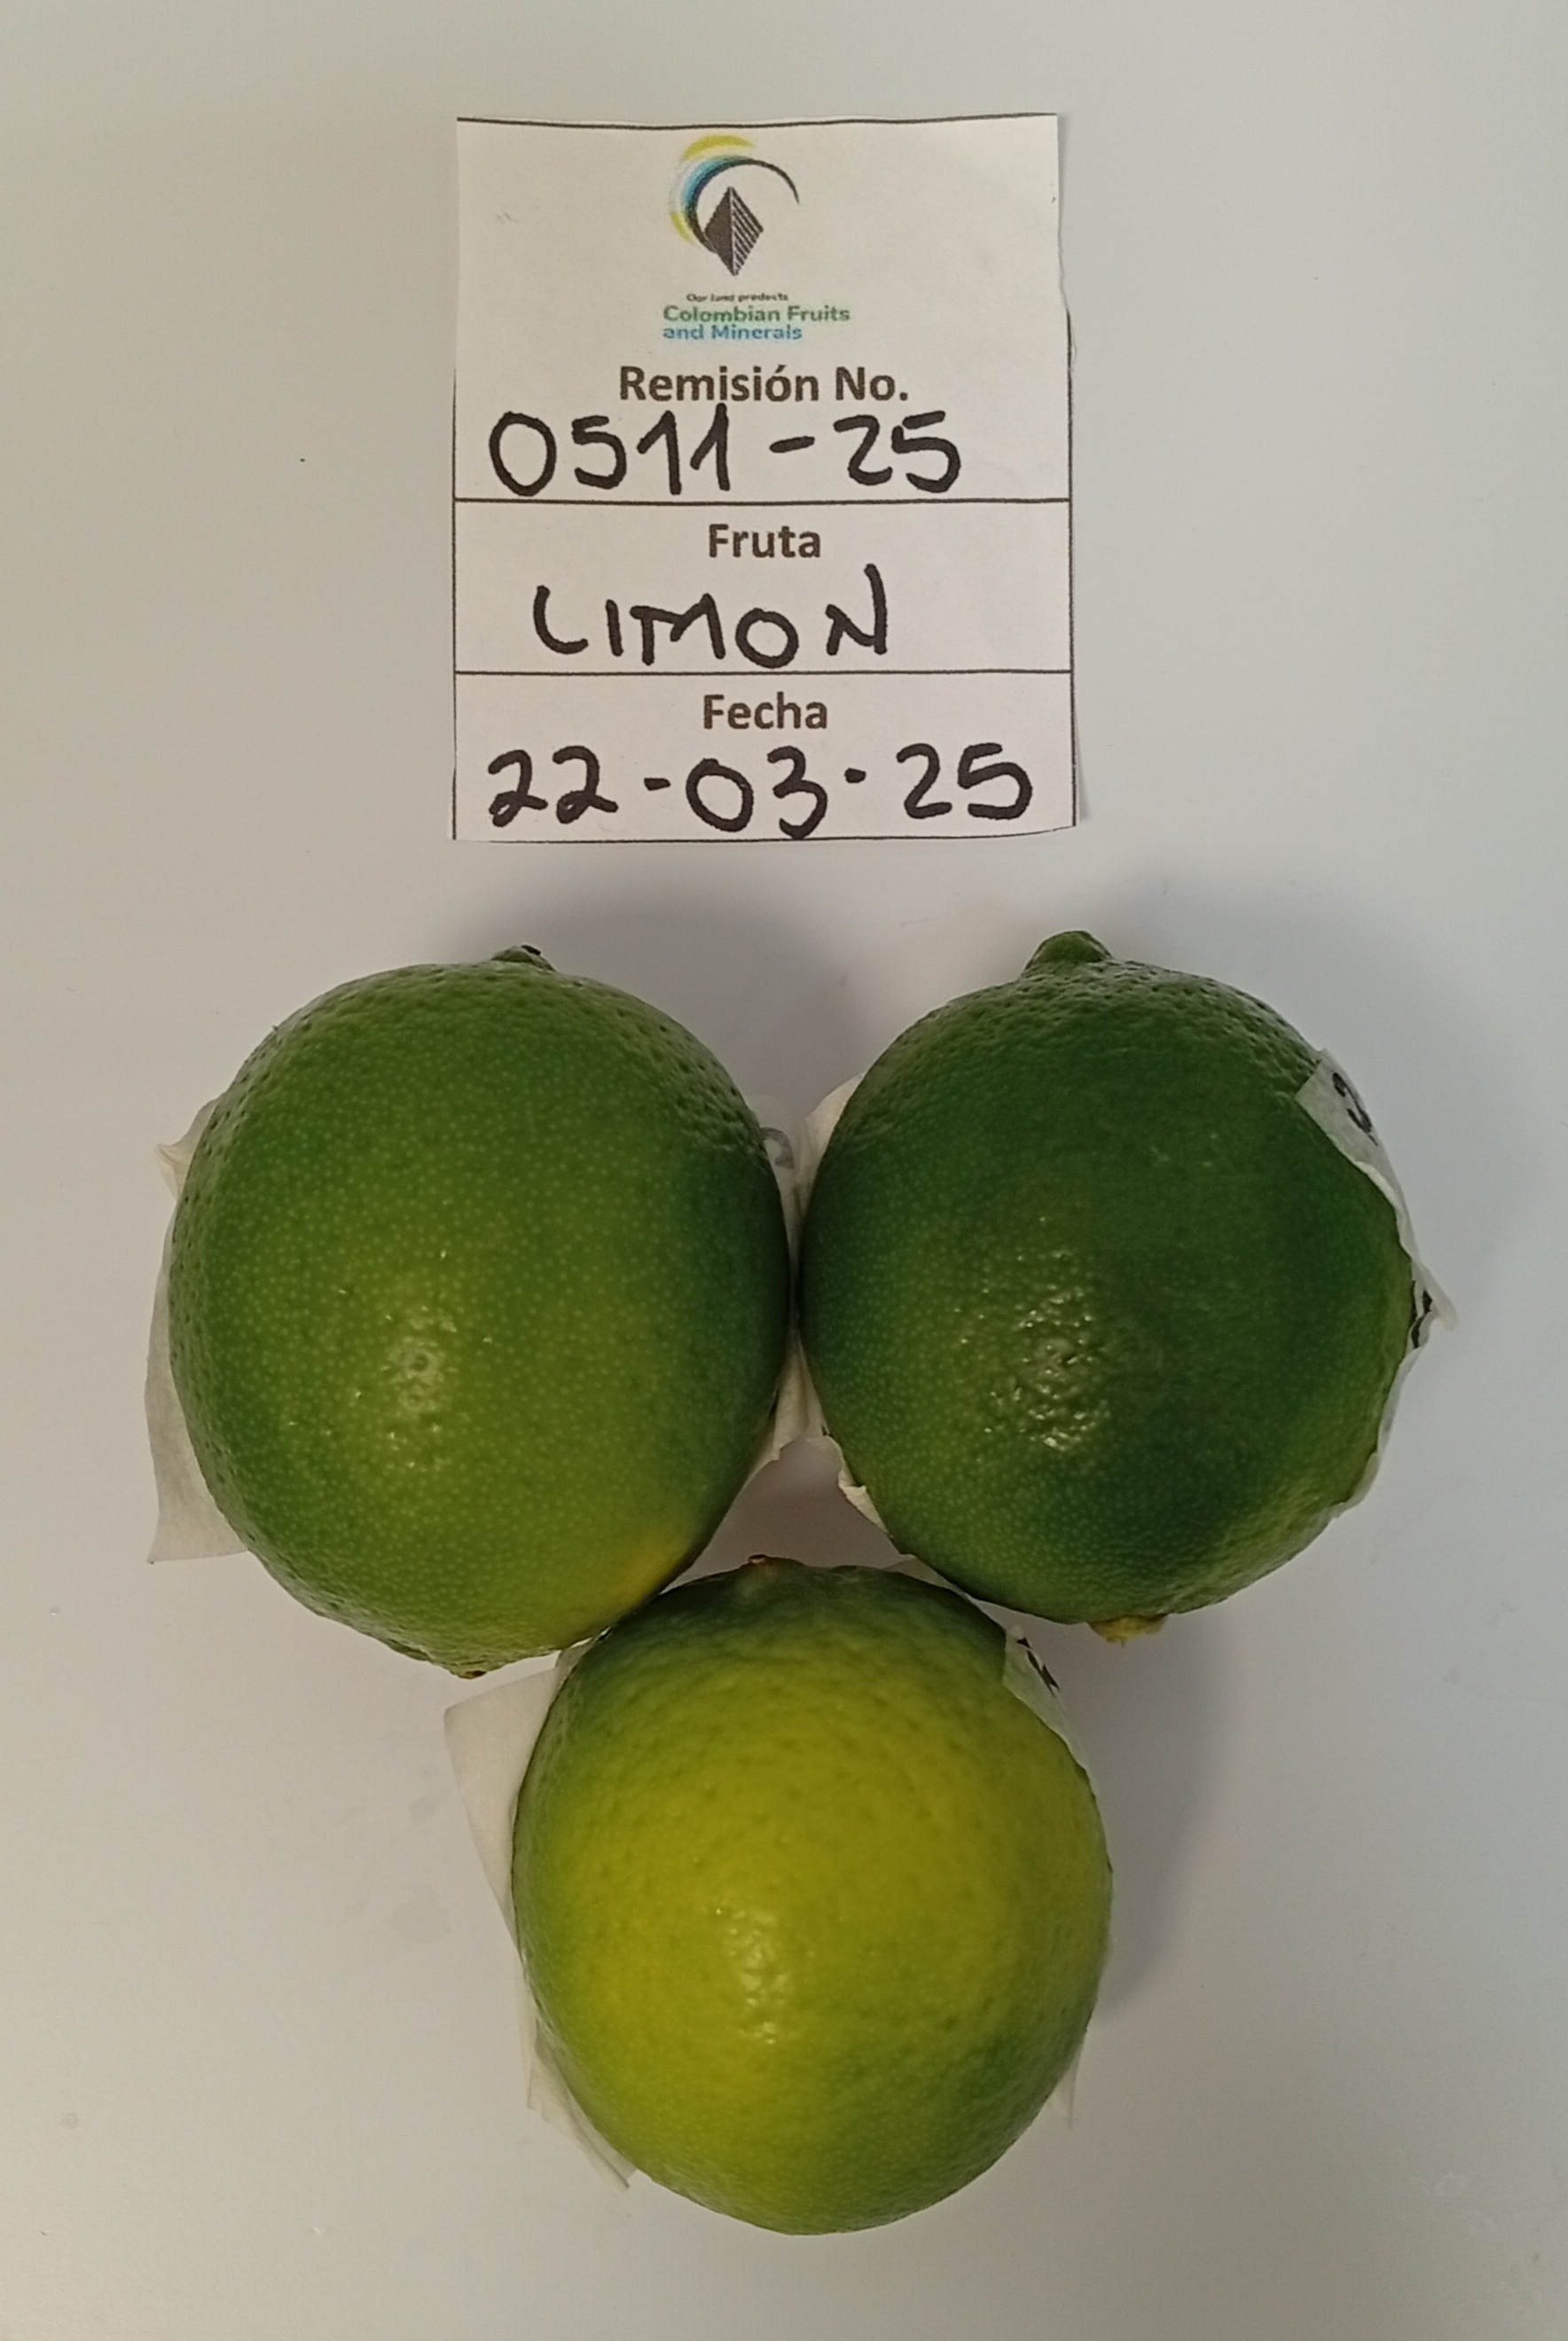 Our land products
Colombian Fruits
and Minerals
Remisión No.
0511-25
Fruta
LIMON
Fecha
22-03-25